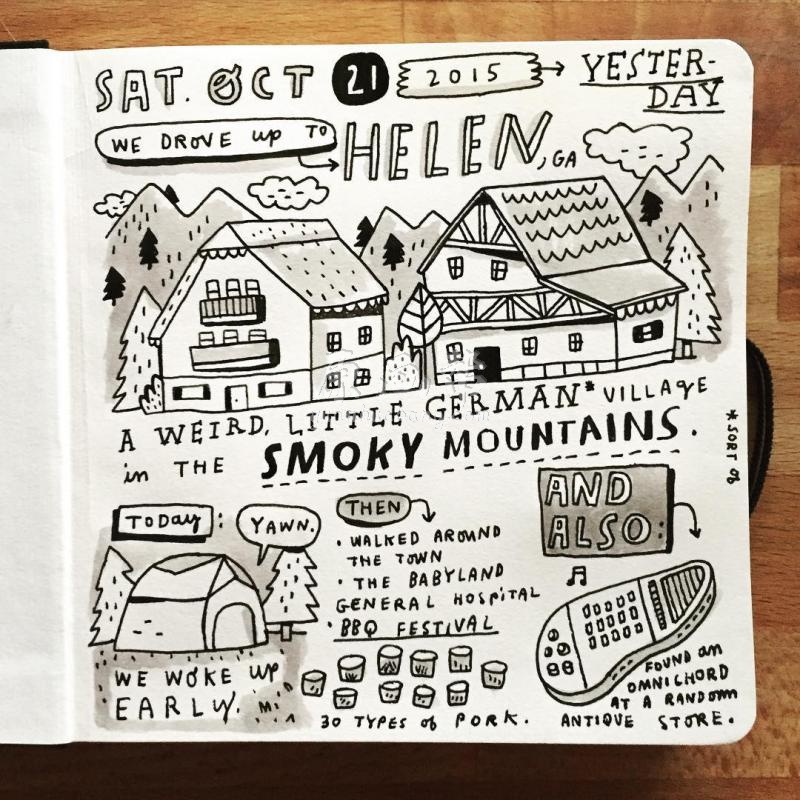 SAT. OCT 21 2015 → YESTER-
DAY
WE DROVE up TO
HELEN, GA
A WEIRD, LITTLE GERMAN* VILLAGE
in THE SMOKY MOUNTAINS.
*SORT of
TODAY:
YAWN.
WE WOKE UP
EARLY.
THEN
• WALKED AROUND
THE TOWN
• THE BABYLAND
GENERAL HOSPITAL
• BBQ FESTIVAL
30 TYPES of PORK.
AND
ALSO:
FOUND an
OMNICHORD
AT A RANDOM
ANTIQUE STORE.